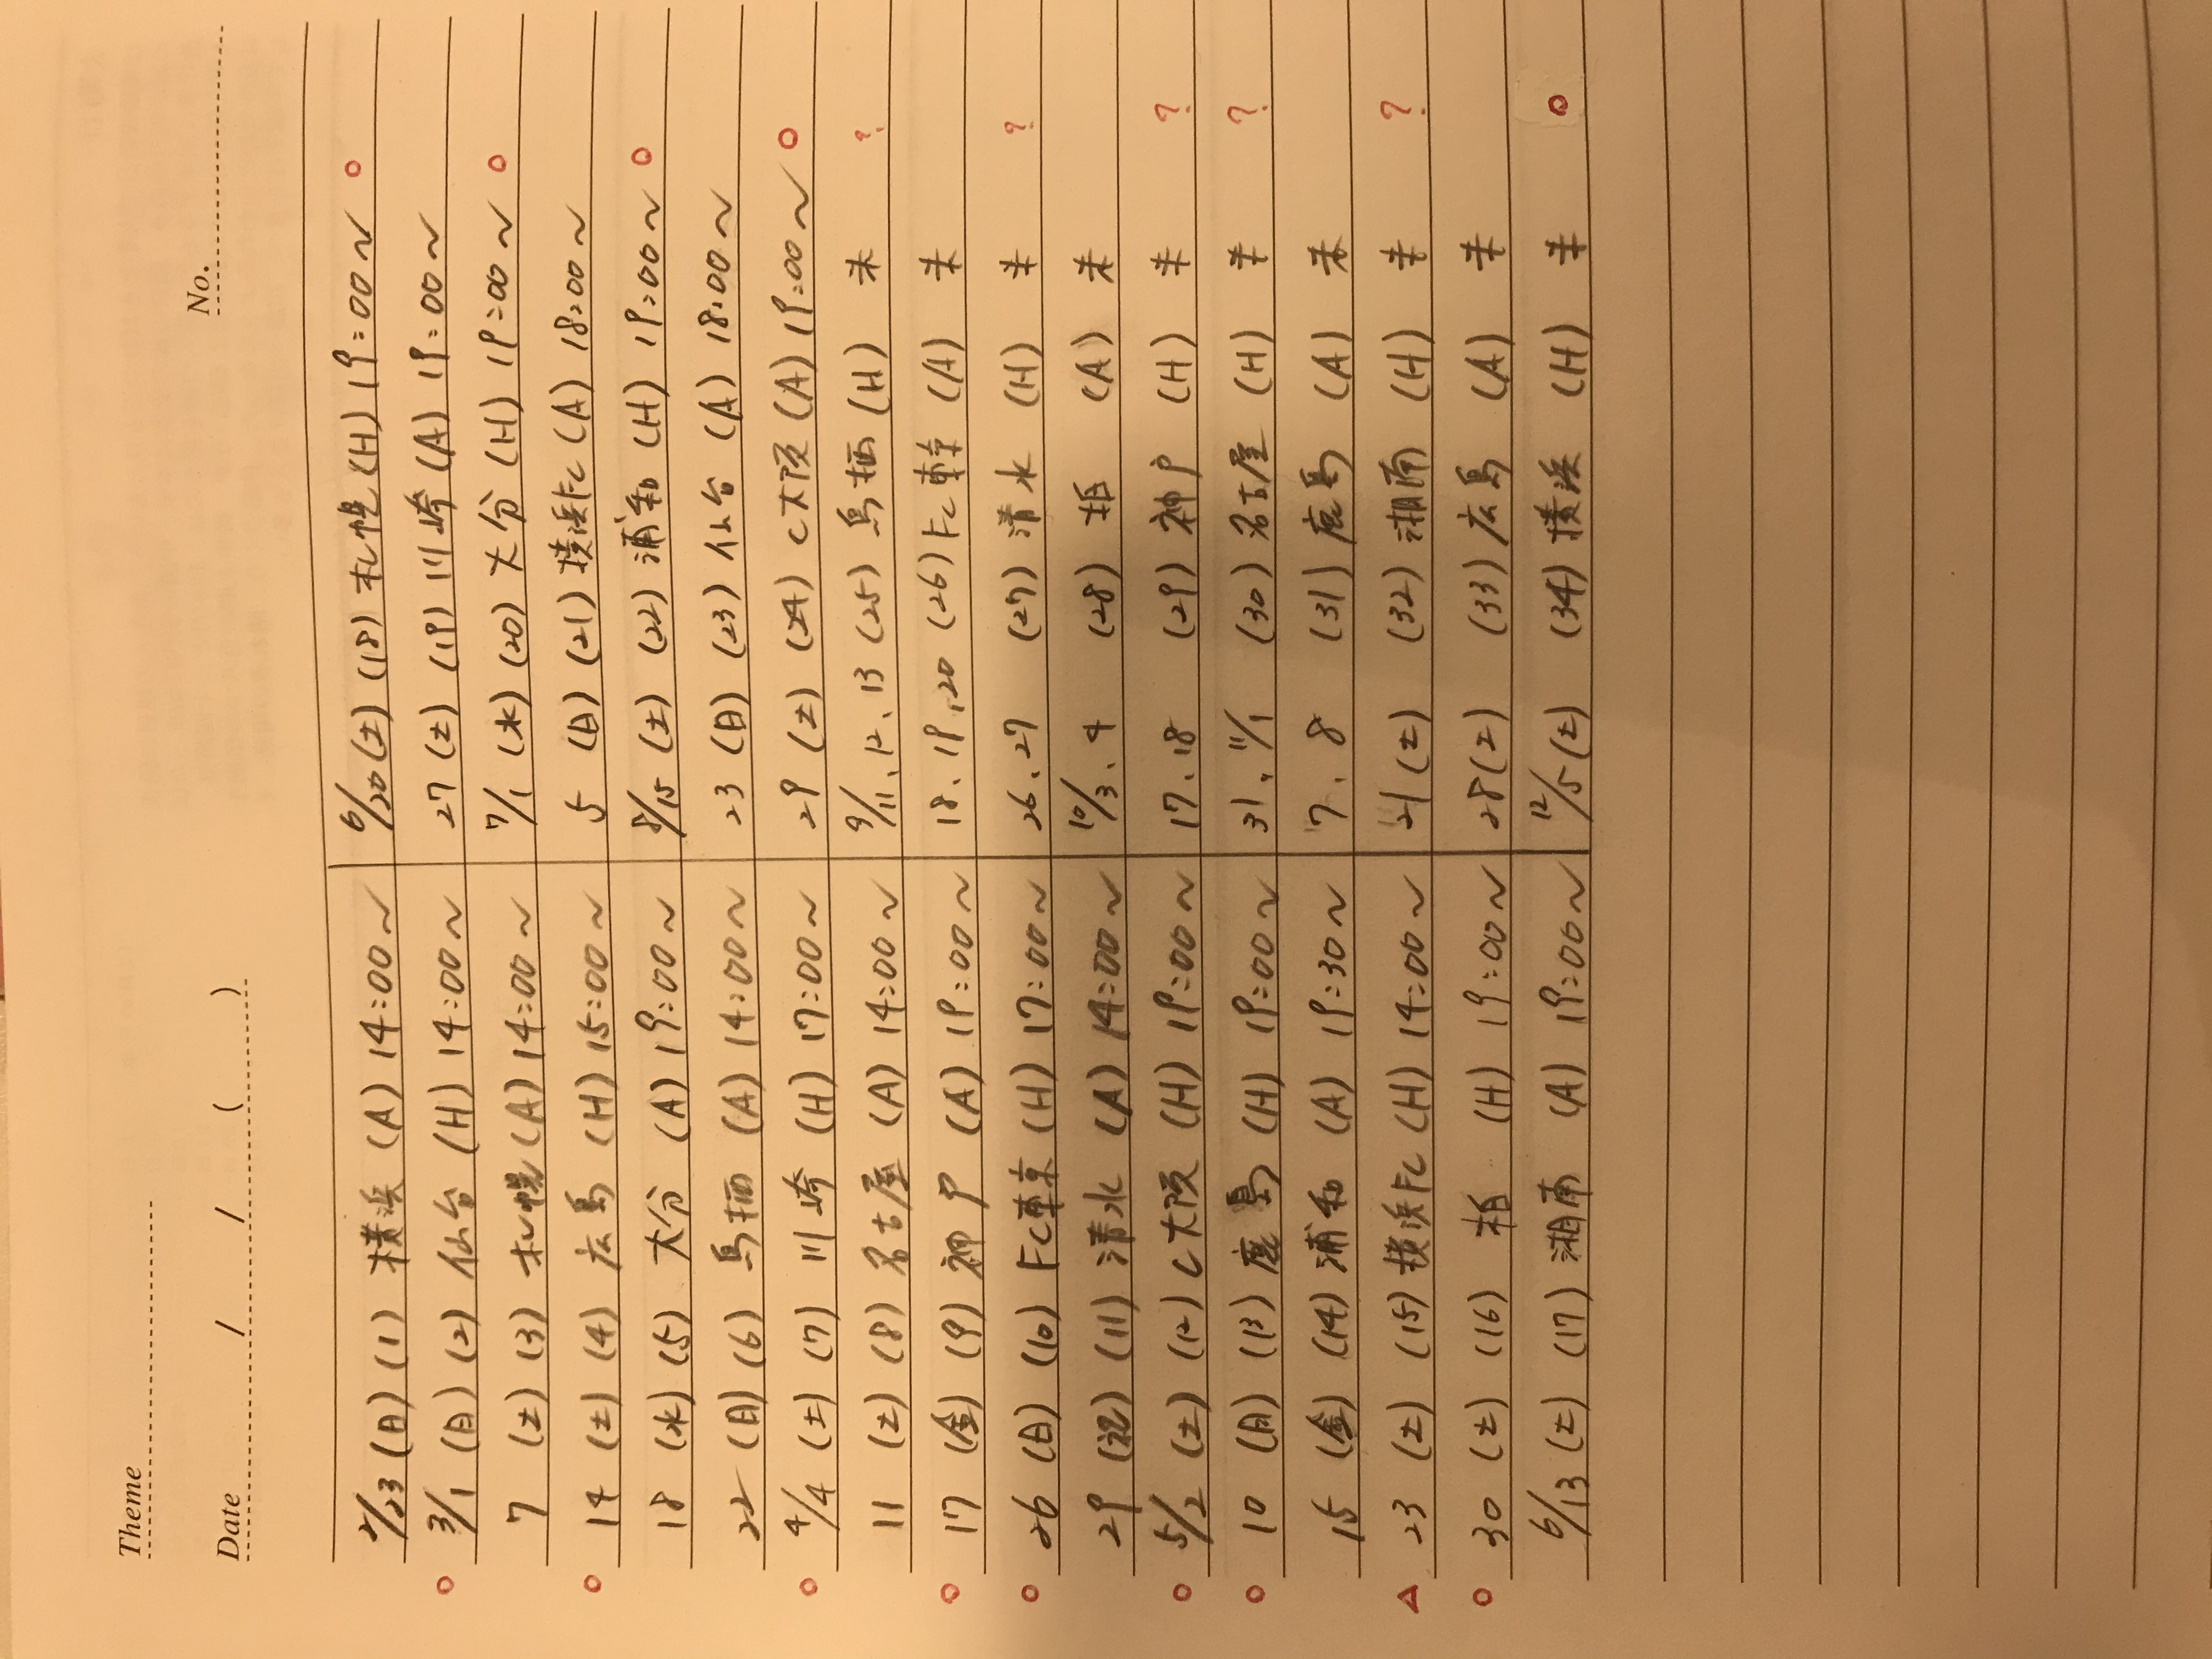 Theme
No.
Date / / ( )
2/23 (日) (1) 横浜 (A) 14:00~
○ 3/1 (日) (2) 仙台 (H) 14:00~
7 (土) (3) 札幌 (A) 14:00~
○ 14 (土) (4) 広島 (H) 15:00~
18 (水) (5) 大分 (A) 19:00~
22 (日) (6) 鳥栖 (A) 14:00~
○ 4/4 (土) (7) 川崎 (H) 17:00~
11 (土) (8) 名古屋 (A) 14:00~
○ 17 (金) (9) 神戸 (A) 19:00~
○ 26 (日) (10) FC東京 (H) 17:00~
29 (祝) (11) 清水 (A) 14:00~
○ 5/2 (土) (12) C大阪 (H) 19:00~
○ 10 (日) (13) 鹿島 (H) 19:00~
15 (金) (14) 浦和 (A) 19:30~
△ 23 (土) (15) 横浜FC (H) 14:00~
○ 30 (土) (16) 柏 (H) 19:00~
6/13 (土) (17) 湘南 (A) 19:00~
6/20 (土) (18) 札幌 (H) 19:00~ ○
27 (土) (19) 川崎 (A) 19:00~
7/1 (水) (20) 大分 (H) 19:00~ ○
5 (日) (21) 横浜FC (A) 18:00~
8/15 (土) (22) 浦和 (H) 19:00~ ○
23 (日) (23) 仙台 (A) 18:00~
29 (土) (24) C大阪 (A) 19:00~ ○
9/11、12、13 (25) 鳥栖 (H) 未 ?
18、19、20 (26) FC東京 (A) 未
26、27 (27) 清水 (H) 未 ?
10/3、4 (28) 柏 (A) 未
17、18 (29) 神戸 (H) 未 ?
31、11/1 (30) 名古屋 (H) 未 ?
7、8 (31) 鹿島 (A) 未
21 (土) (32) 湘南 (H) 未 ?
28 (土) (33) 広島 (A) 未
12/5 (土) (34) 横浜 (H) 未 ○